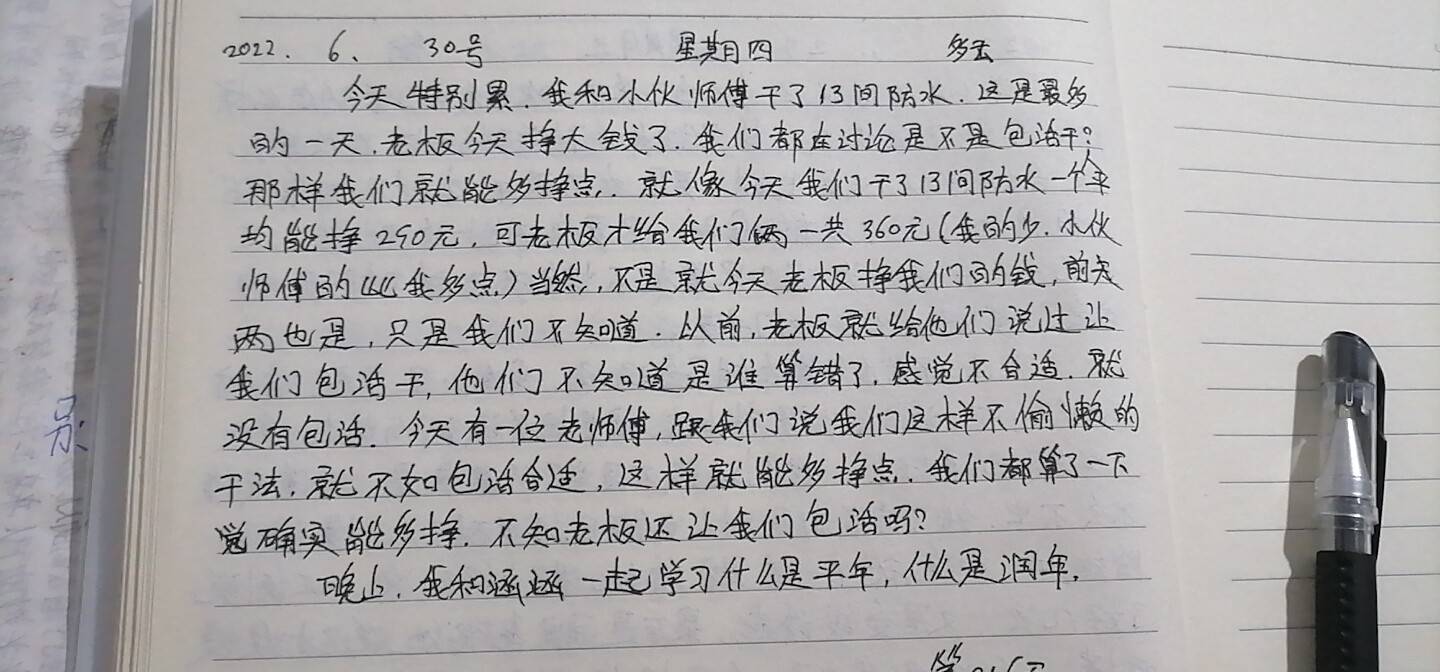 2022. 6、 30号 星期日四 多云
今天特别累.我和小伙师傅干了13间防水.这是最多
的一天.老板今天挣大钱了.我们都在讨论是不是包活干?
那样我们就能多挣点.就像今天我们干了13间防水一个人平
均能挣290元,可老板才给我们俩一共360元(我的少.小伙
师傅的比我多点)当然,不是就今天老板挣我们的钱,前天
两也是,只是我们不知道.以前,老板就给他们说过让
我们包活干,他们不知道是谁算错了.感觉不合适.就
没有包活.今天有一位老师傅,跟我们说我们这样不偷懒的
干法.就不如包活合适,这样就能多挣点.我们都算了一下
觉确实能多挣.不知老板还让我们包活吗?
晚上.我和涵涵一起学习什么是平年,什么是润年.